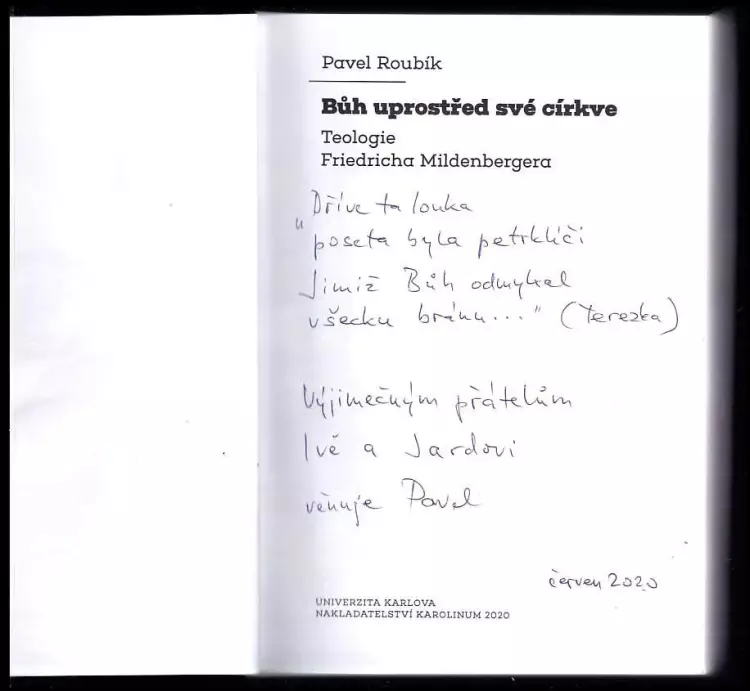 Pavel Roubík
Bůh uprostřed své církve
Teologie
Friedricha Mildenbergera
„Dříve ta louka
poseta byla petrklíči
Jimiž Bůh odmykal
všecku bránu..." (Terezka)
Výjimečným přátelům
Ivě a Jardovi
věnuje Pavel
červen 2020
UNIVERZITA KARLOVA
NAKLADATELSTVÍ KAROLINUM 2020